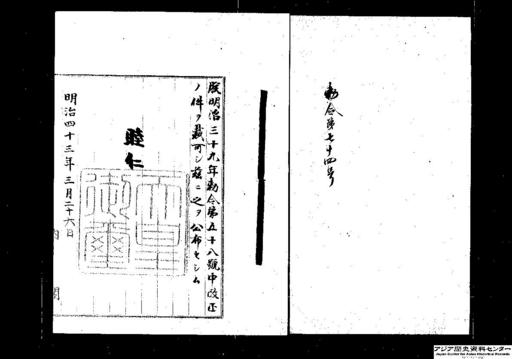 勅令第七十四号
朕明治三十九年勅令第五十八號中改正
ノ件ヲ裁可シ茲ニ之ヲ公布セシム
睦仁
天皇御璽
明治四十三年三月二十六日
内閣
アジア歴史資料センター
Japan Center for Asian Historical Records